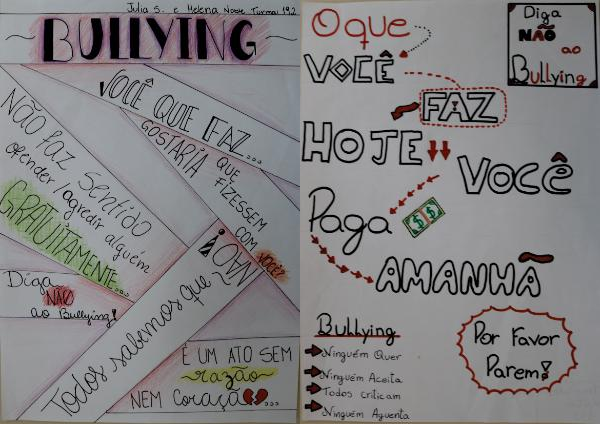 Julia S. e Helena Noste Turma 192
BULLYING
VOCÊ QUE FAZ...
GOSTARIA QUE
FIZESSEM
COM
VOCÊ?
NÃO faz sentido
ofender/agredir alguém
GRATUITAMENTE...
Diga
NÃO
ao Bullying!
Todos sabemos que NÃO!
É UM ATO SEM
razão
NEM CORAÇÃO...
O que
VOCÊ
FAZ
HOJE
VOCÊ
Paga
AMANHÃ
Diga
NÃO
ao
Bullying
Bullying
Ninguém Quer
Ninguém Aceita
Todos criticam
Ninguém Aguenta
Por Favor
Parem!